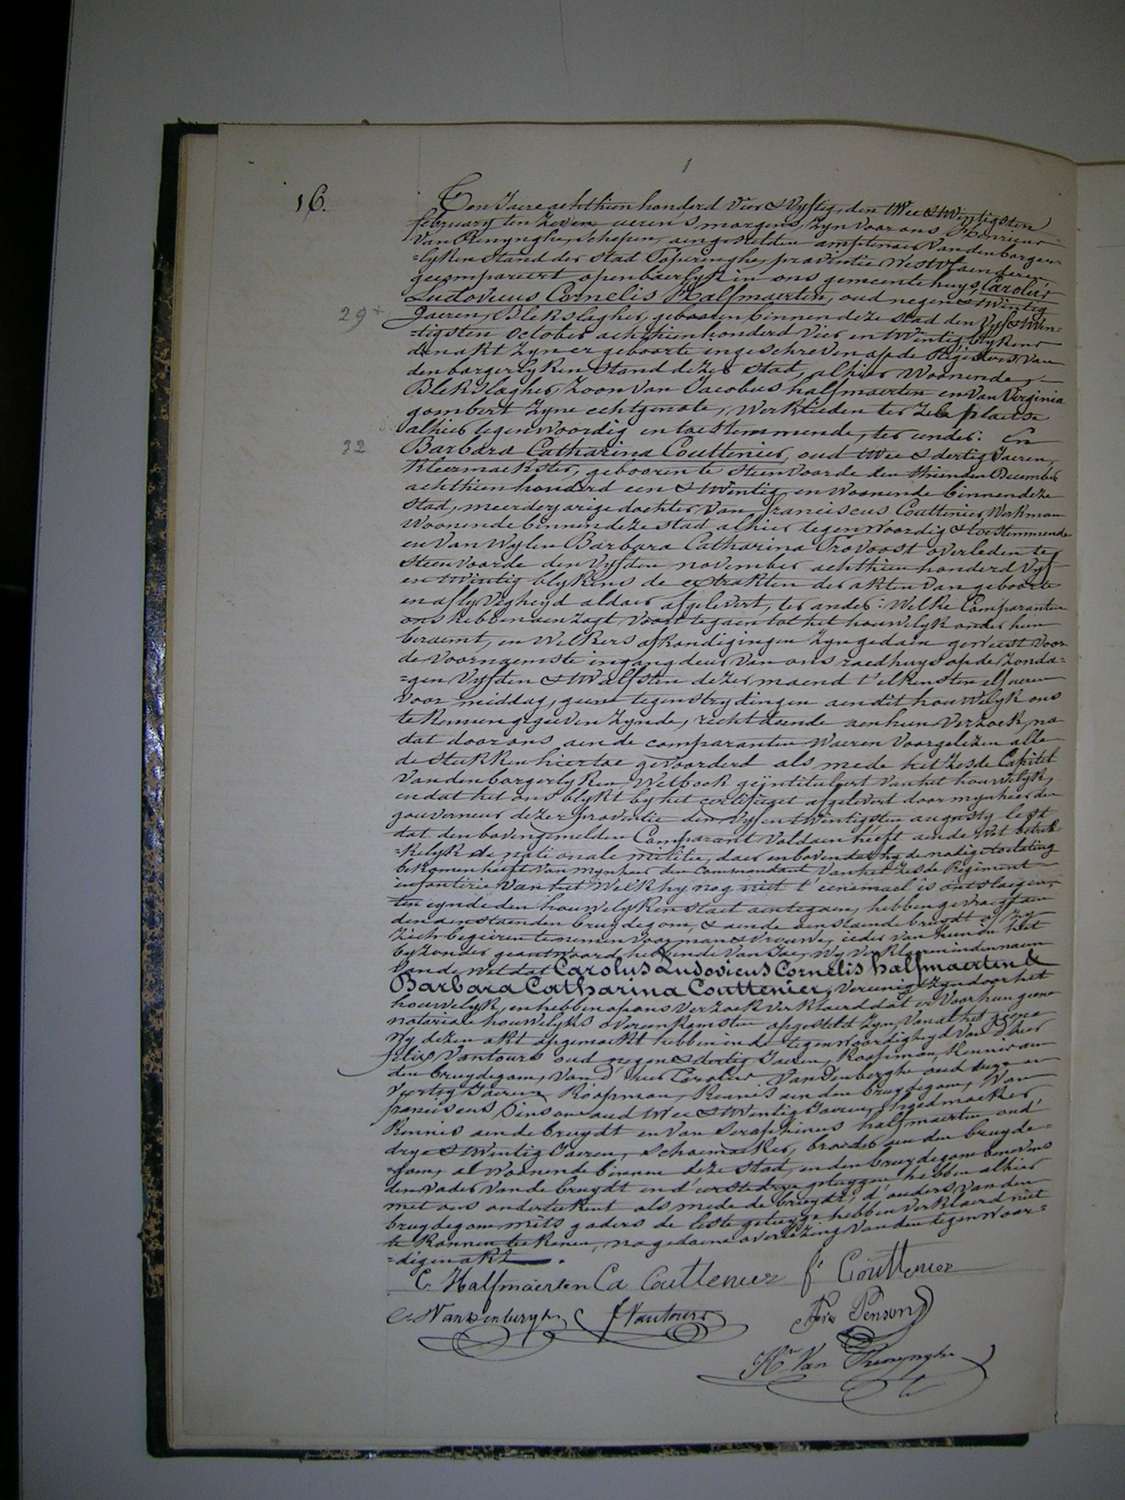 16.
Ten Jaere achthien honderd Vier & Vyftig, den twee & twintigsten
february ten Zeven ueren 's morgens, Zyn voor ons Henricus
Van Renynghe, schepen, aengestelden amptenaer van den borger=
=lyken stand der stad Poperinghe, provintie Westvlaenderen,
gecompareert openbaerlyk in ons gemeentehuys, Carolus
Ludovicus Cornelis Halfmaerten, oud negen & twintig
29
Jaeren, Blekslagher, geboren binnen deze stad den vyf & twin=
=tigsten october achthien honderd vier en twintig blykens
den akt Zyner geboorte ingeschreven op de Registers van
den borgerlyken stand dezer stad, alhier Woonende
Blekslagher, Zoon van Jacobus halfmaerten en van Virginia
gombert Zyne echtgenote, Werklieden ter Zelve plaetse
alhier tegenwoordig en toestemmende, ter eender: En
32
Barbara Catharina Couttenier, oud twee & dertig Jaeren,
Kleermaekster, gebooren te Steenvoorde den thienden December
achthien honderd een & twintig en Woonende binnen deze
stad, meerderjarige dochter van franciscus Couttenier Werkman
Woonende binnen deze stad alhier tegenwoordig & toestemmende
en van Wylen Barbara Catharina Provoost overleden te
Steenvoorde den vyfden november achthien honderd vyf
en twintig blykens de extrakten der akten van geboorte
en aflyvigheyd aldaer afgelevert, ter ander: Welke Comparanten
ons hebben aenzogt, voort te gaen tot het houwelyk onder hun
beraemt, en Welkers afkondigingen Zyn gedaen geweest voor
de voornaemste ingang deur van ons raedhuys op de Zonda=
=gen vyfden & twalfsten dezer maend t'elkens ten elf ueren
voor middag, geene tegenstrydingen aen dit houwelyk ons
te kennen gegeven Zynde, recht doende aen hun verzoek, na
dat door ons aen de comparanten waeren voorgelezen alle
de stukken hiertoe gevoorderd als mede het Zesde Capittel
van den borgerlyken Wetboek geïntituleert van het houwelyk,
en dat het ons blykt by het certificaet afgelevert door mynheer den
gouverneur dezer provintie den vyf en twintigsten augusty lest
dat den bovengemelden Comparant voldaen heeft aen de Wet betrek=
=kelyk de nationale militie, daer en boven dat hy de nodige toelating
bekomen heeft van mynheer den Commandant van het Zesde Regiment
infanterie van het Welk hy nog niet t'eenemael is ontslaegen,
ten eynde den houwelyken staet aentegaen, hebben gevraegt aen
den aenstaenden bruydegom, & aen de aenstaende bruydt of zy
Zich begeeren te nemen voor man & vrouwe, ieder van hun in het
byzonder geantwoord hebbende van Jae, Wy verklaeren in den naem
van de Wet dat Carolus Ludovicus Cornelis halfmaerten &
Barbara Catharina Couttenier, vereenigt Zyn door het
houwelyk, en hebben op ons verzoek verklaerd dat er voor hun geene
notariale houwelyks overeenkomsten opgesteld Zyn, van al het gene
Wy dezen akt opgemaekt hebben in de tegenwoordigheyd van d'heer
felix Vantours oud negen & dertig Jaeren, Koopman, Kennis aen
den bruydegom, van d'heer Carolus Vandenberghe oud
Veertig Jaeren, Koopman, Kennis aen den bruydegom, Van
franciscus Pinson oud twee & twintig Jaeren, hoedmaeker
Kennis aen de bruydt en van Seraphinus halfmaerten oud
drye & twintig Jaeren, schoemaeker, broeder aen den bruyde=
=gom, al Woonende binnen deze stad, en den bruydegom benevens
den vader van de bruydt en d'eerste drye getuygen hebben alhier
met ons onderteekent als mede de bruydt, d'ouders van den
bruydegom mits gaders de leste getuyge hebben verklaerd niet
te konnen teekenen, na gedaene overlezing van den tegenwoor=
=digen akt.
C. Halfmaerten Ca Couttenier f Couttenier
C. Vandenberghe f Vantours Pinson
Hr Van Renynghe